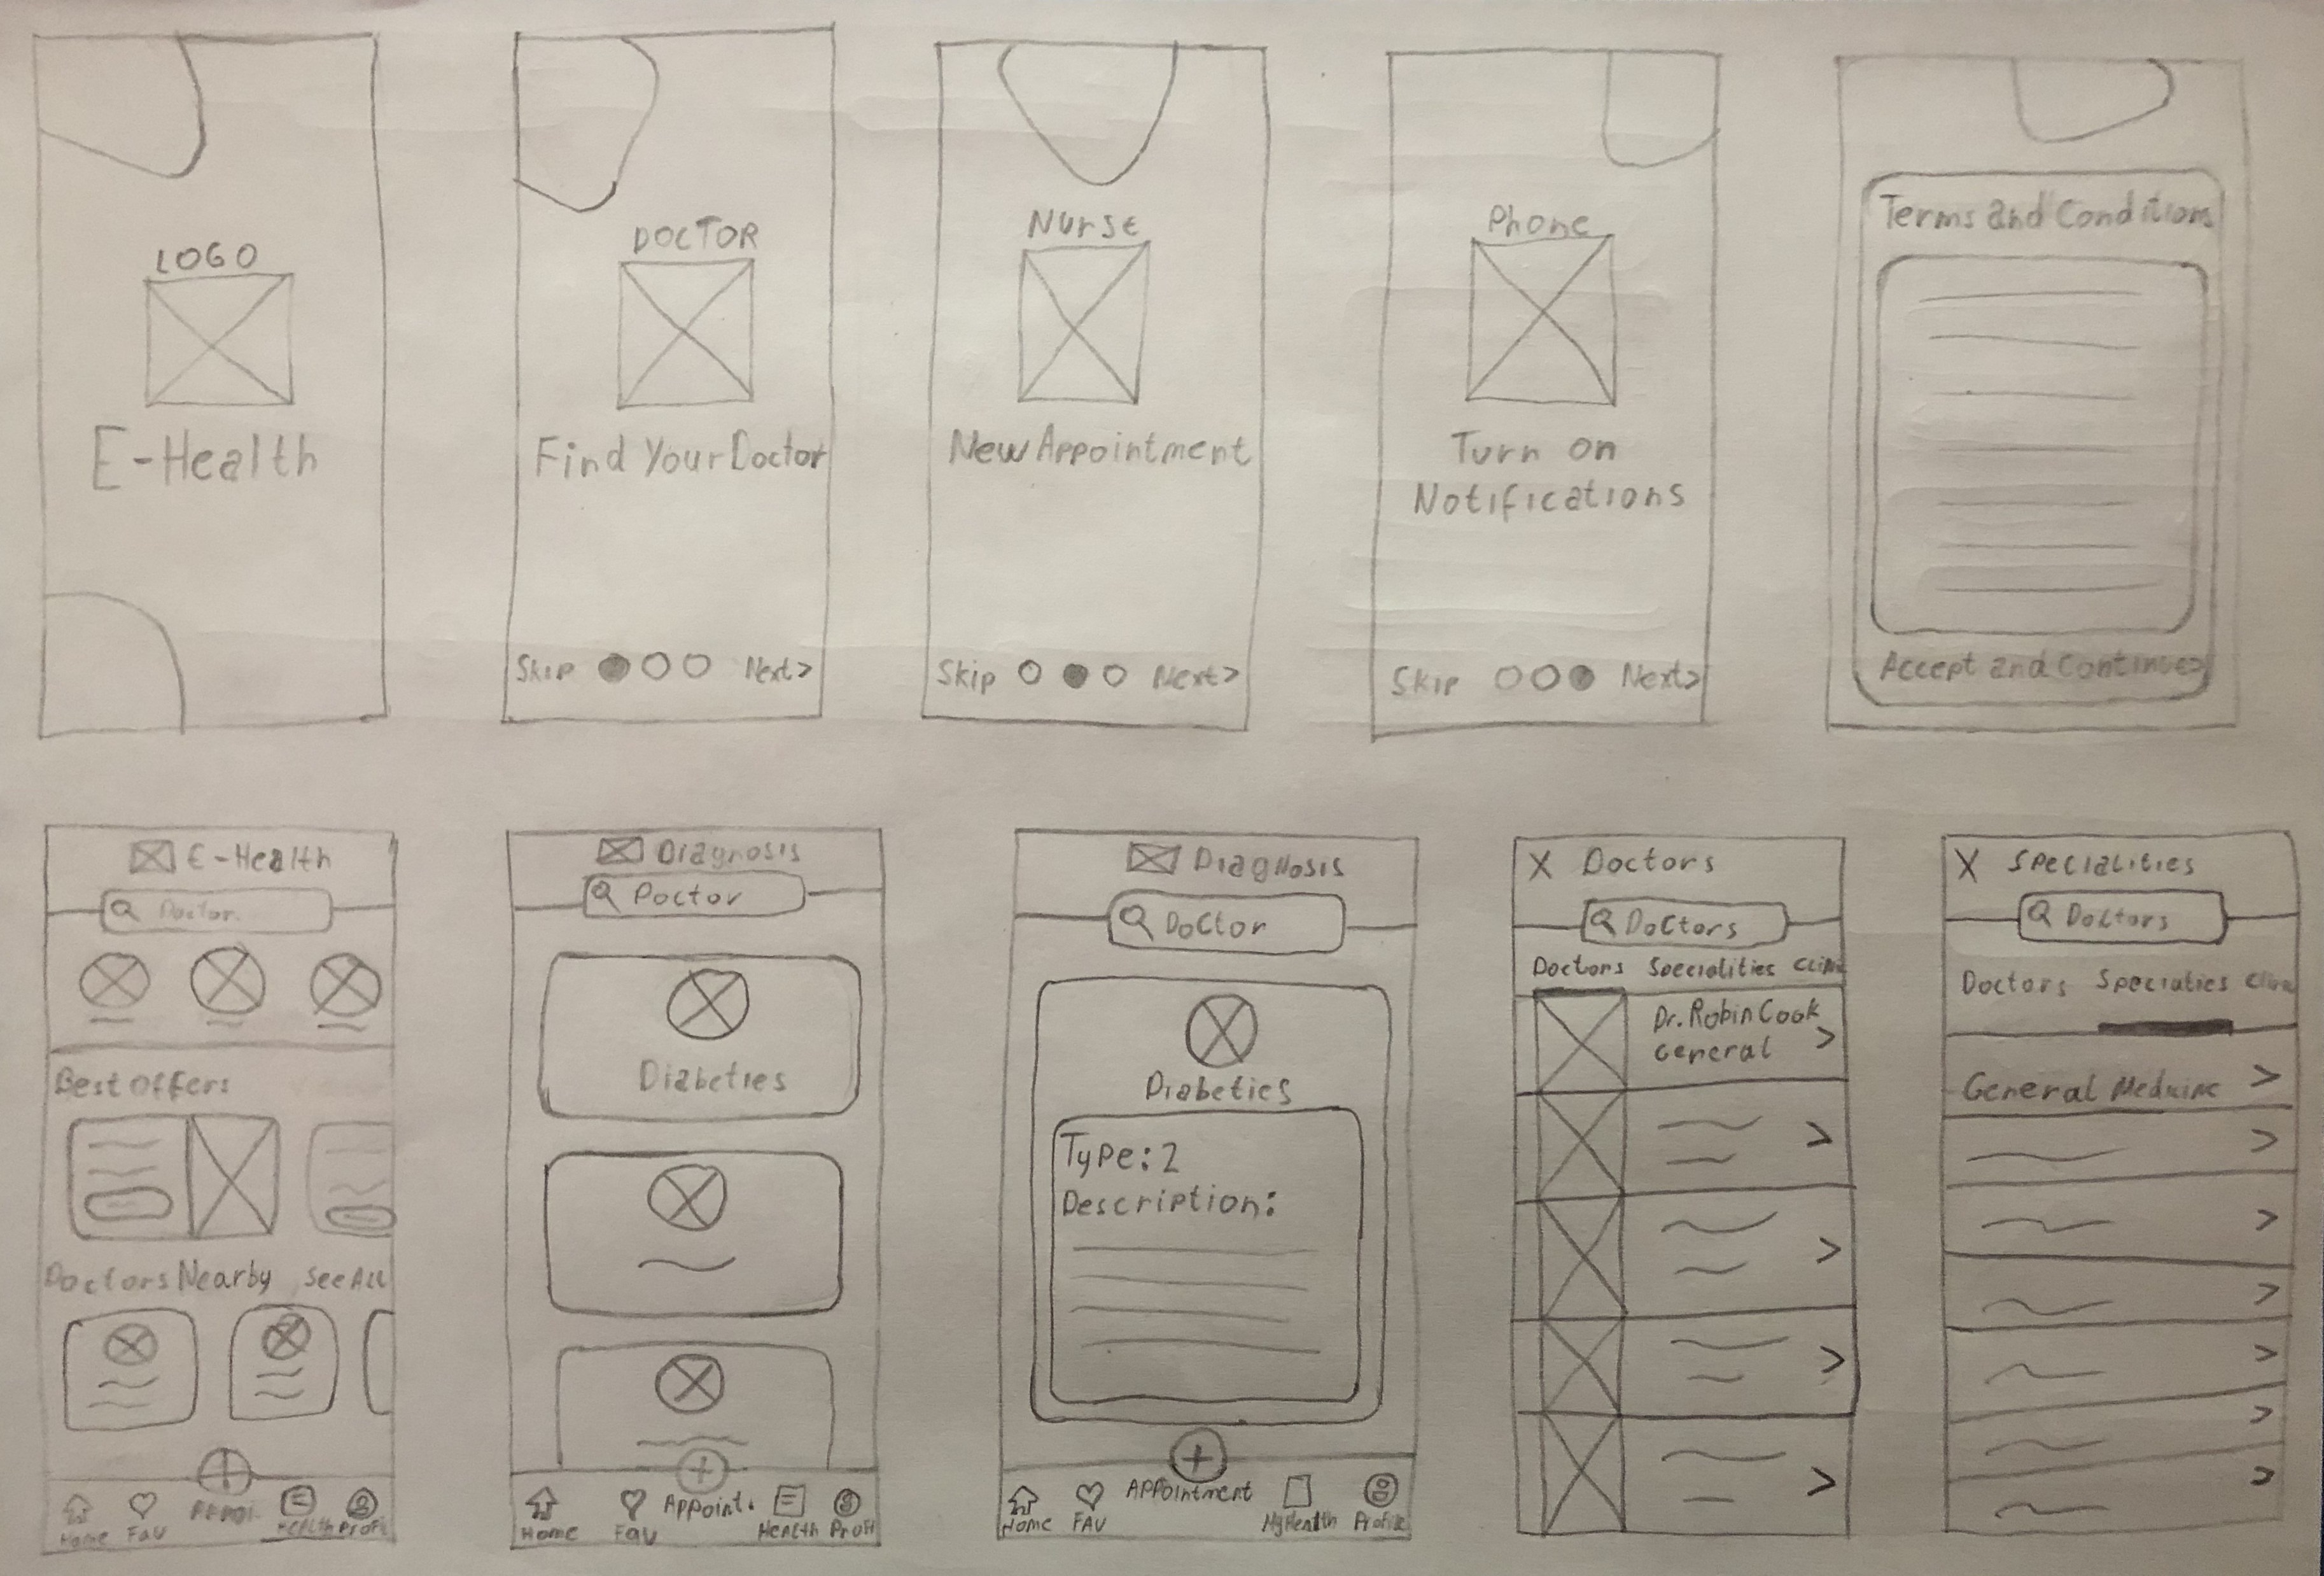 LOGO
E-Health
DOCTOR
Find Your Doctor
Skip Next>
Nurse
New Appointment
Skip Next>
Phone
Turn on
Notifications
Skip Next>
Terms and Conditions
Accept and Continue>
E-Health
Doctor
Best Offers
Doctors Nearby See All
Appoi.
Home Fav Health Profi
Diagnosis
Doctor
Diabeties
Appoint.
Home Fav Health Profi
Diagnosis
Doctor
Diabetics
Type: 2
Description:
Appointment
Home FAV MyHealth Profile
X Doctors
Doctors
Doctors Specialities Clinic
Dr. Robin Cook
General >
>
>
>
>
X Specialities
Doctors
Doctors Specialties Clinic
General Medicine >
>
>
>
>
>
>